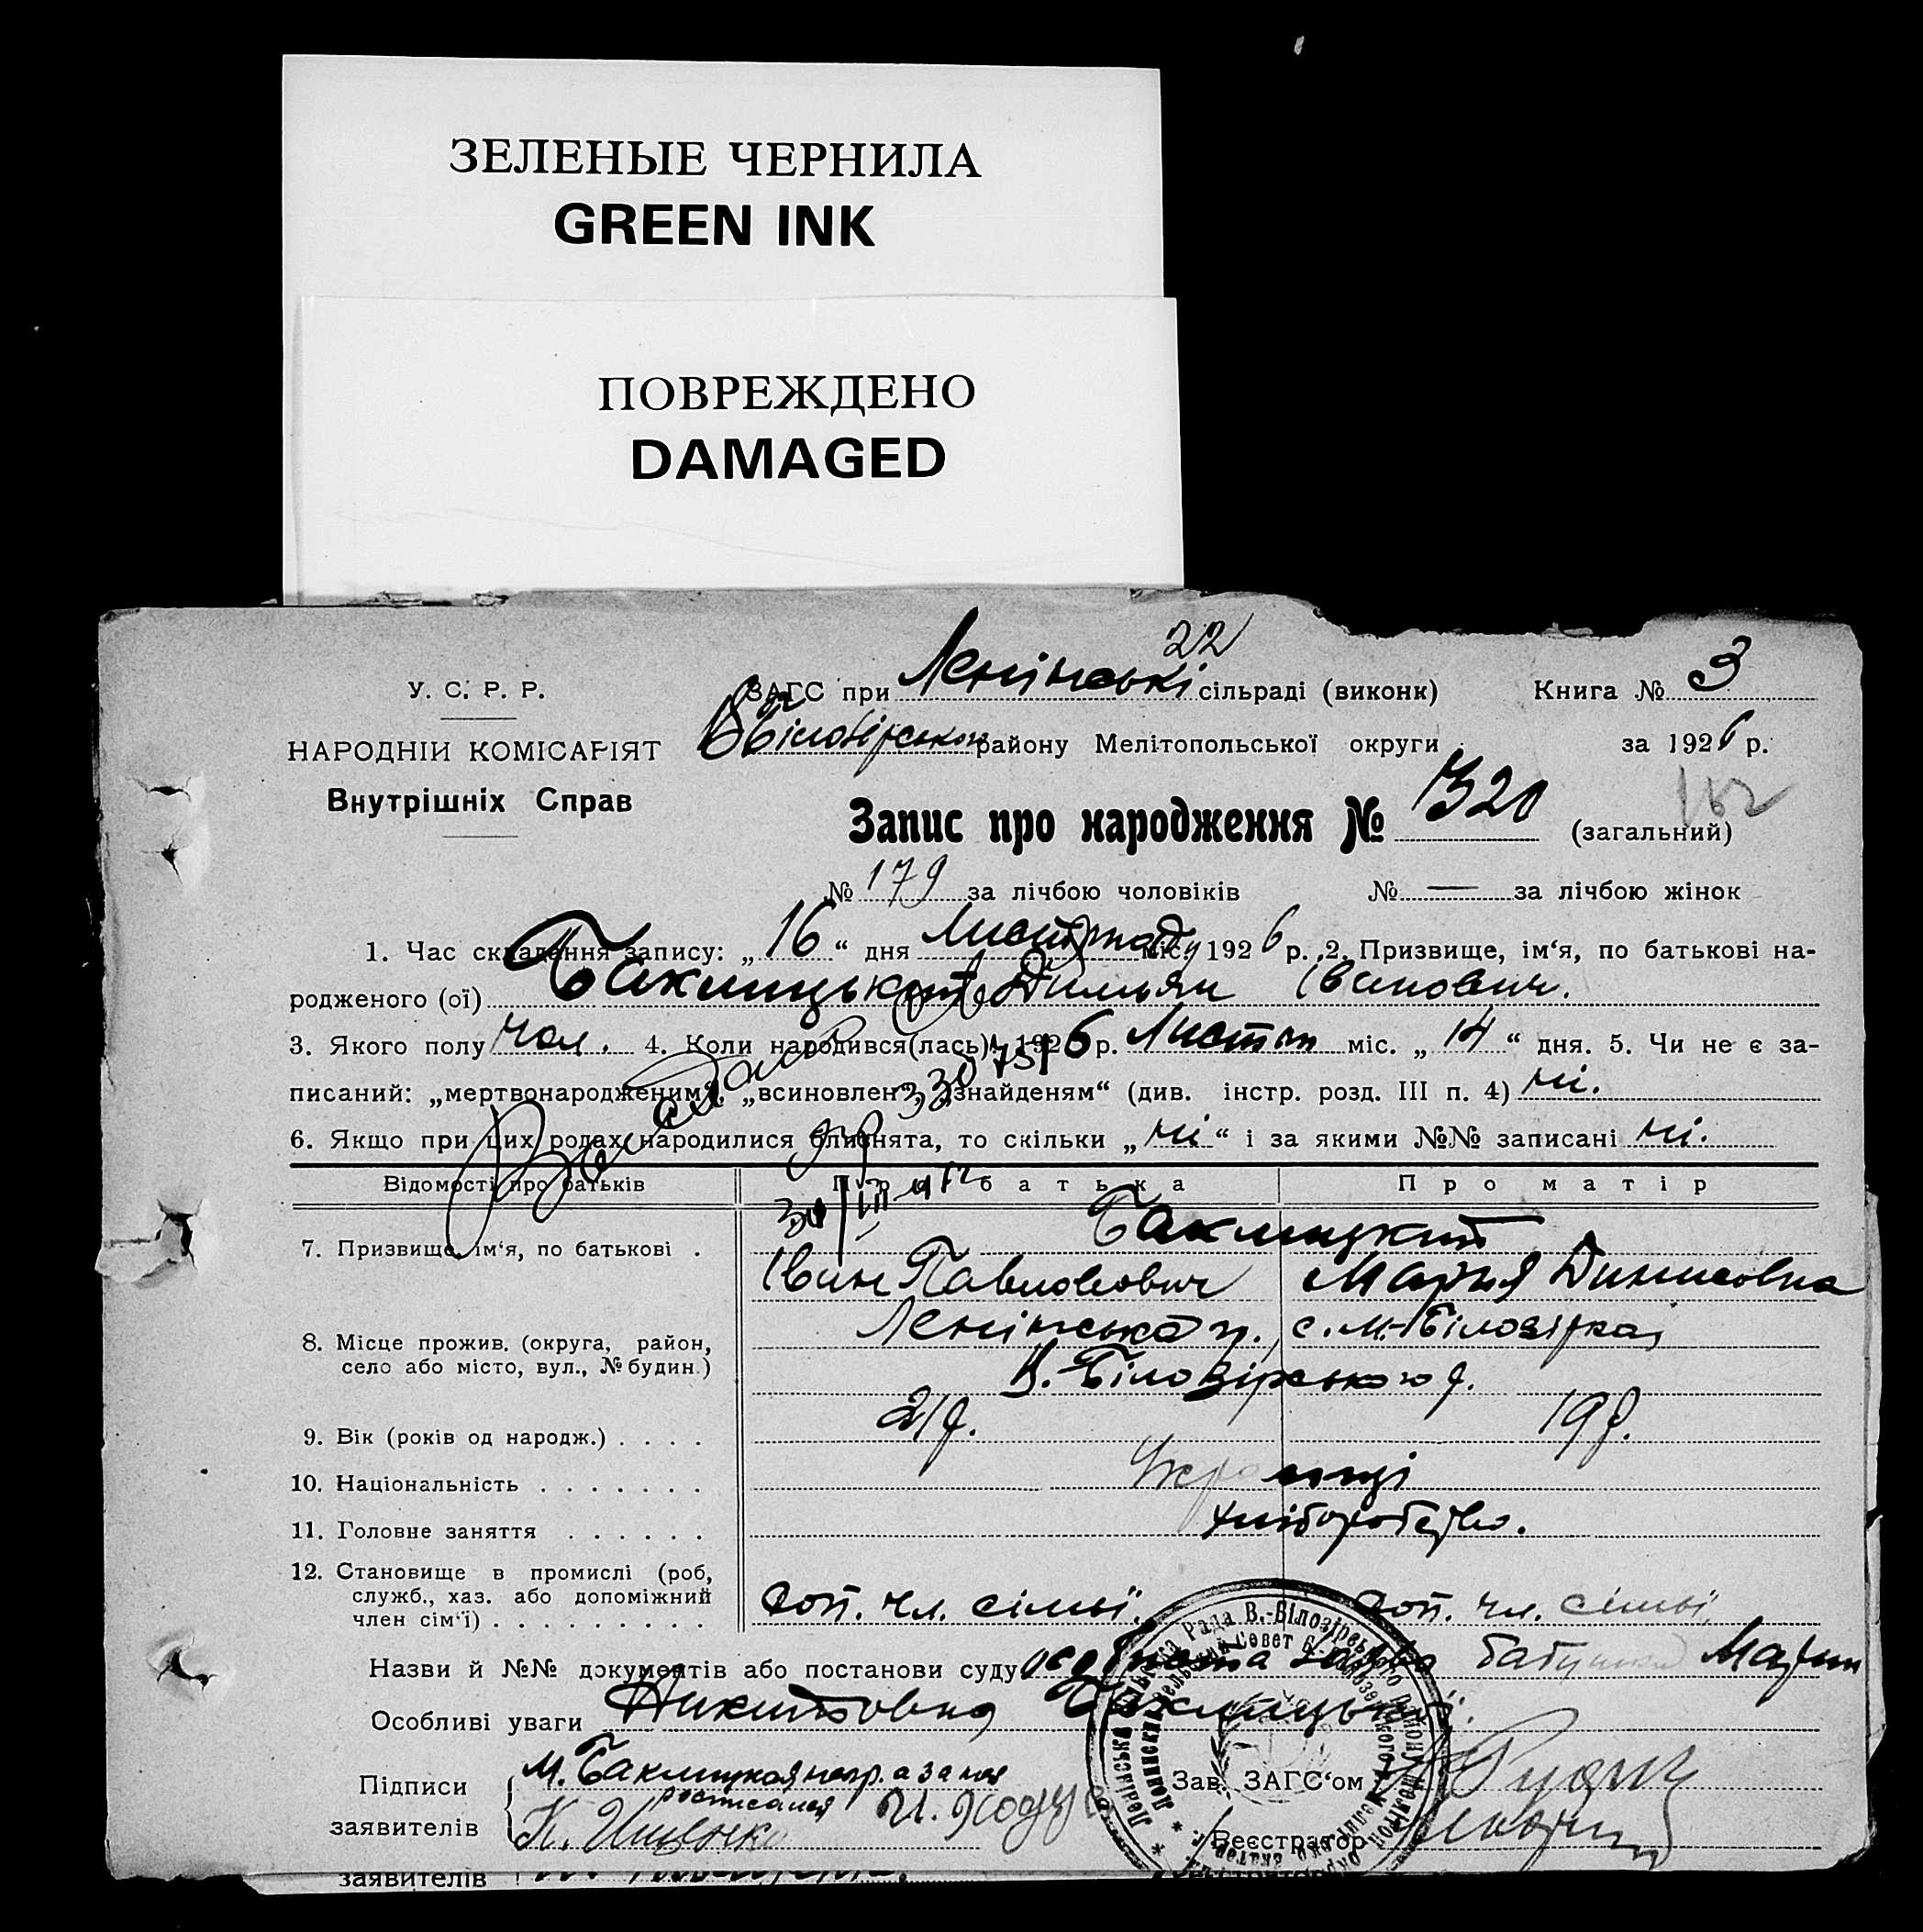 ЗЕЛЕНЫЕ ЧЕРНИЛА
GREEN INK
ПОВРЕЖДЕНО
DAMAGED
22
У. С. Р. Р.
ЗАГС при Ленінські сільраді (виконк) Книга № 3
НАРОДНІЙ КОМІСАРІЯТ
В Білозірського району Мелітопольської округи за 1926 р.
Внутрішніх Справ
Запис про народження № 320 (загальний)
№ 179 за лічбою чоловіків № — за лічбою жінок
1. Час складання запису: „16“ дня Листопаду міс. 1926 р. 2. Призвище, ім‘я, по батькові на-
родженого (ої) Бакмицький Димьян Іванович.
3. Якого полу чол. 4. Коли народився(лась) 1926 р. Листоп міс. „14“ дня. 5. Чи не є за-
писаний: „мертвонародженим“, „всиновлен“, „знайденям“ (див. інстр. розд. III п. 4) ні.
6. Якщо при цих родах народилися близнята, то скільки „ні“ і за якими №№ записані ні.
Відомості про батьків Про батька Про матір
7. Призвище, ім‘я, по батькові . Бакмицкий
Іван Павлович Мария Динисовна
8. Місце прожив. (округа, район, Ленінська п., с. М.-Білозірка,
село або місто, вул., № будин.) В.-Білозірського р.
9. Вік (років од народж.) . . . . 21 р. 19 р.
10. Національність . . . . . . . Українці
11. Головне заняття . . . . . . хліборобство.
12. Становище в промислі (роб,
служб., хаз. або допоміжний
член сім‘ї) . . . . . . . . . доп. чл. сімьї. доп. чл. сімьї.
Назви й №№ документів або постанови суду особиста заява бабушки Марии
Особливі уваги Никитовна Бакмицької.
Підписи М. Бакмицкая негр. а за нея
заявителів расписался
Зав. ЗАГС‘ом
Реєстратор
Ленінська Сільська Рада В.-Білозірського району Мелітоп. округи
Ленинский Сельский Совет В.-Белозерского
заявителів